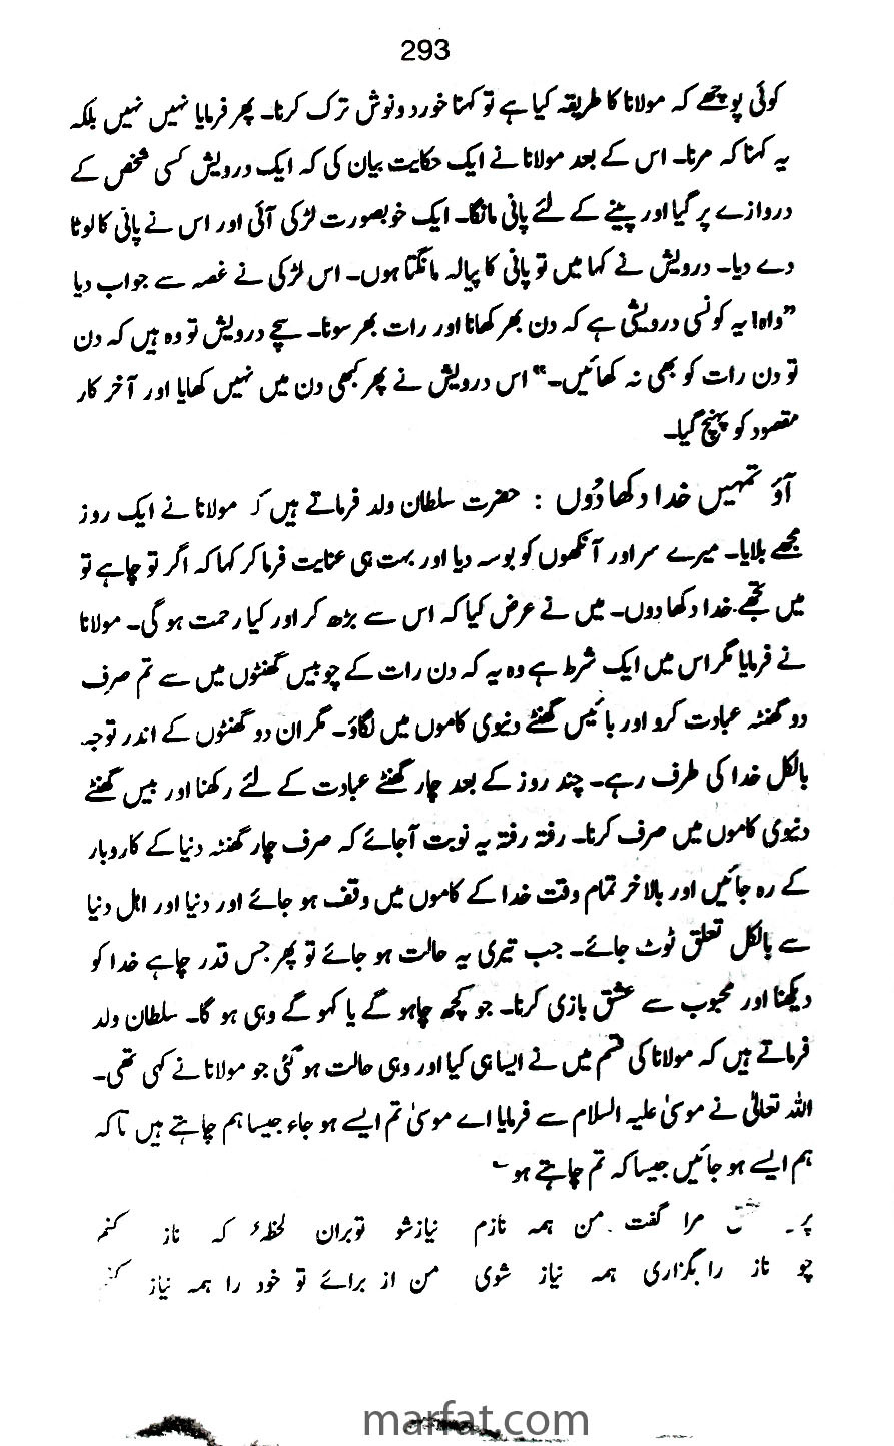 293
کوئی پوچھے کہ مولانا کا طریقہ کیا ہے تو کہنا خورد و نوش ترک کرنا۔ پھر فرمایا نہیں نہیں بلکہ
یہ کہنا کہ مرنا۔ اس کے بعد مولانا نے ایک حکایت بیان کی کہ ایک درویش کسی شخص کے
دروازے پر گیا اور پینے کے لئے پانی مانگا۔ ایک خوبصورت لڑکی آئی اور اس نے پانی کا لوٹا
دے دیا۔ درویش نے کہا میں تو پانی کا پیالہ مانگتا ہوں۔ اس لڑکی نے غصہ سے جواب دیا
”واہ! یہ کونسی درویشی ہے کہ دن بھر کھانا اور رات بھر سونا۔ سچے درویش تو وہ ہیں کہ دن
تو دن رات کو بھی نہ کھائیں۔“ اس درویش نے پھر کبھی دن میں نہیں کھایا اور آخر کار
مقصود کو پہنچ گیا۔
آؤ تمہیں خدا دکھا دُوں : حضرت سلطان ولد فرماتے ہیں کہ مولانا نے ایک روز
مجھے بلایا۔ میرے سر اور آنکھوں کو بوسہ دیا اور بہت ہی عنایت فرما کر کہا کہ اگر تو چاہے تو
میں تجھے خدا دکھا دوں۔ میں نے عرض کیا کہ اس سے بڑھ کر اور کیا رحمت ہو گی۔ مولانا
نے فرمایا مگر اس میں ایک شرط ہے وہ یہ کہ دن رات کے چوبیس گھنٹوں میں سے تم صرف
دو گھنٹہ عبادت کرو اور بائیس گھنٹے دنیوی کاموں میں لگاؤ۔ مگر ان دو گھنٹوں کے اندر توجہ
بالکل خدا کی طرف رہے۔ چند روز کے بعد چار گھنٹے عبادت کے لئے رکھنا اور بیس گھنٹے
دنیوی کاموں میں صرف کرنا۔ رفتہ رفتہ یہ نوبت آجائے کہ صرف چار گھنٹہ دنیا کے کاروبار
کے رہ جائیں اور بالاخر تمام وقت خدا کے کاموں میں وقف ہو جائے اور دنیا اور اہل دنیا
سے بالکل تعلق ٹوٹ جائے۔ جب تیری یہ حالت ہو جائے تو پھر جس قدر چاہے خدا کو
دیکھنا اور محبوب سے عشق بازی کرنا۔ جو کچھ چاہو گے یا کہو گے وہی ہو گا۔ سلطان ولد
فرماتے ہیں کہ مولانا کی قسم میں نے ایسا ہی کیا اور وہی حالت ہو گئی جو مولانا نے کہی تھی۔
اللہ تعالیٰ نے موسیٰ علیہ السلام سے فرمایا اے موسیٰ تم ایسے ہو جاء جیسا ہم چاہتے ہیں تاکہ
ہم ایسے ہو جائیں جیسا کہ تم چاہتے ہو ؎
مرا گفت من ہمہ نازم نیاز شو تو بران لحظہء کہ ناز کنم
چو ناز را بگزاری ہمہ نیاز شوی من از برائے تو خود را ہمہ نیاز
marfat.com